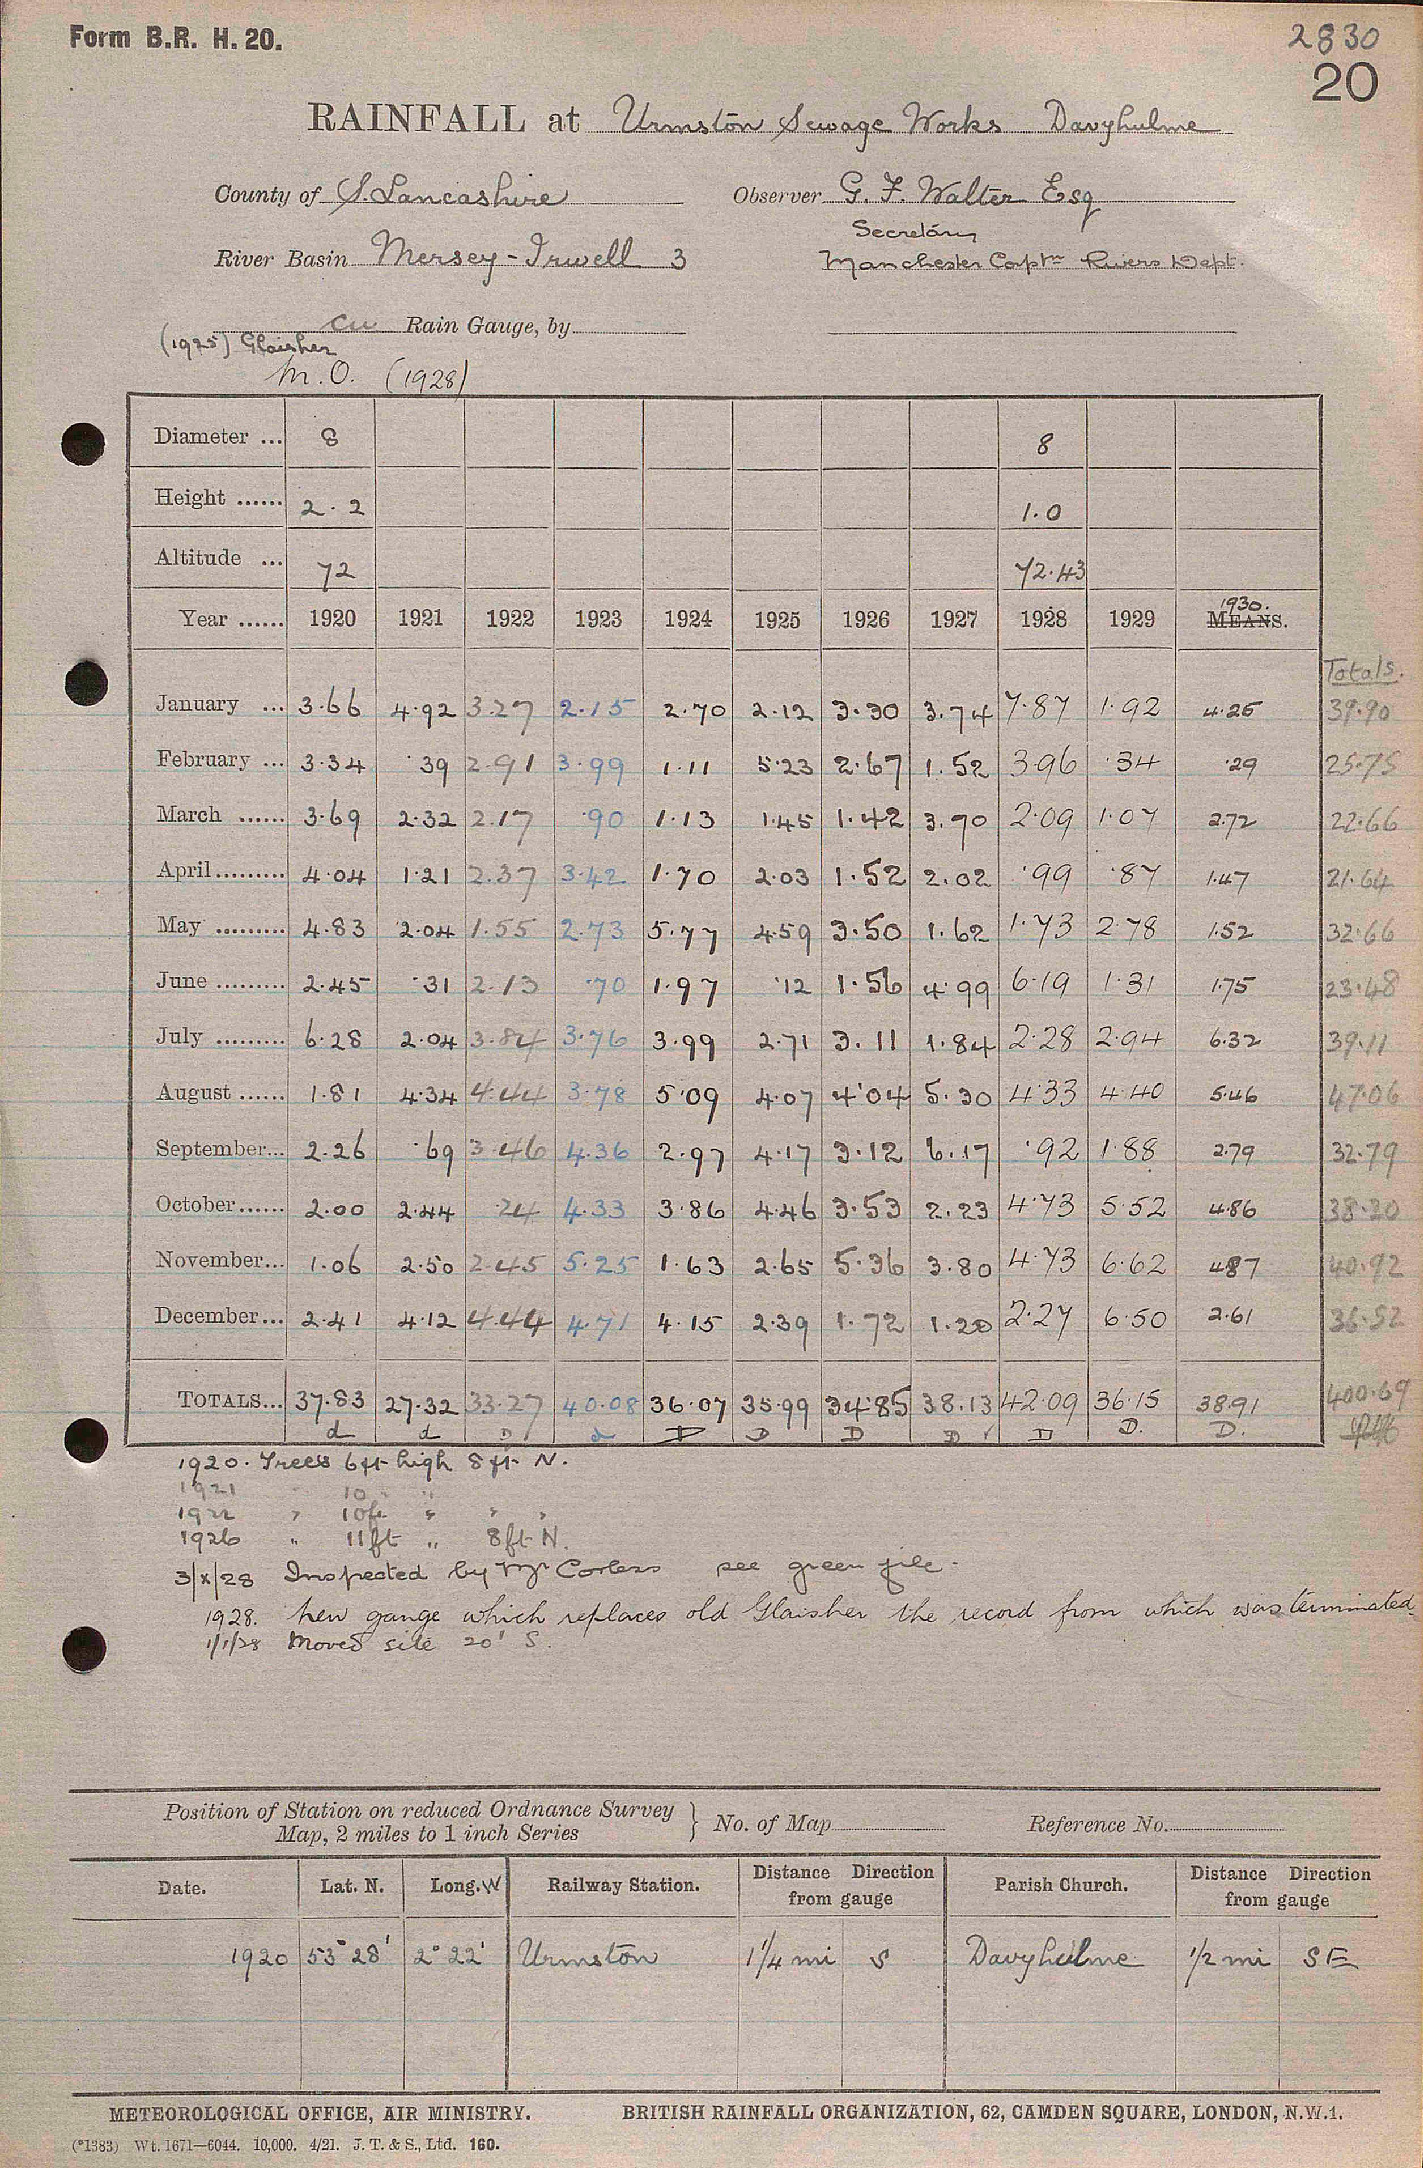 Form B.R. H. 20.
2830
20
RAINFALL at Urmston Sewage Works Davyhulme
County of S. Lancashire Observer G. F. Walter Esq
Secretary
River Basin Mersey-Irwell 3 Manchester Corptn Rivers Dept.
Cu Rain Gauge, by
(1925) Glaisher
M.O. (1928)
Diameter ... 8 8
Height ...... 2.2 1.0
Altitude ... 72 72.43
Year ...... 1920 1921 1922 1923 1924 1925 1926 1927 1928 1929 1930. MEANS.
Totals.
January ... 3.66 4.92 3.27 2.15 2.70 2.12 3.30 3.74 7.87 1.92 4.25 39.90
February ... 3.34 .39 2.91 3.99 1.11 5.23 2.67 1.52 3.96 .34 .29 25.75
March ...... 3.69 2.32 2.17 .90 1.13 1.45 1.42 3.70 2.09 1.07 2.72 22.66
April ......... 4.04 1.21 2.37 3.42 1.70 2.03 1.52 2.02 .99 .87 1.47 21.64
May ......... 4.83 2.04 1.55 2.73 5.77 4.59 3.50 1.62 1.73 2.78 1.52 32.66
June ......... 2.45 .31 2.13 .70 1.97 .12 1.56 4.99 6.19 1.31 1.75 23.48
July ......... 6.28 2.04 3.84 3.76 3.99 2.71 3.11 1.84 2.28 2.94 6.32 39.11
August ...... 1.81 4.34 4.44 3.78 5.09 4.07 4.04 5.30 4.33 4.40 5.46 47.06
September... 2.26 .69 3.46 4.36 2.97 4.17 3.12 6.17 .92 1.88 2.79 32.79
October...... 2.00 2.44 .24 4.33 3.86 4.46 3.53 2.23 4.73 5.52 4.86 38.20
November... 1.06 2.50 2.45 5.25 1.63 2.65 5.36 3.80 4.73 6.62 4.87 40.92
December... 2.41 4.12 4.44 4.71 4.15 2.39 1.72 1.20 2.27 6.50 2.61 36.52
TOTALS... 37.83 27.32 33.27 40.08 36.07 35.99 34.85 38.13 42.09 36.15 38.91 400.69
d d D d D D D D D D. D.
1920. Trees 6ft high 8ft N.
1921 " 10 " "
1922 " 10ft " " "
1926 " 11ft " 8ft N.
3/X/28 Inspected by Mr Corless see green file.
1928. New gauge which replaces old Glaisher the record from which was terminated.
1/1/28 Moved site 20' S.
Position of Station on reduced Ordnance Survey
Map, 2 miles to 1 inch Series } No. of Map Reference No.
Date. Lat. N. Long. W Railway Station. Distance Direction from gauge Parish Church. Distance Direction from gauge
1920 53° 28' 2° 22' Urmston 1 1/4 mi S Davyhulme 1/2 mi SE
METEOROLOGICAL OFFICE, AIR MINISTRY. BRITISH RAINFALL ORGANIZATION, 62, CAMDEN SQUARE, LONDON, N.W.1.
(*1383) Wt. 1671—6044. 10,000. 4/21. J. T. & S., Ltd. 160.